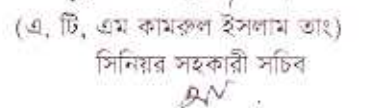 (এ, টি, এম কামরুল ইসলাম তাং)
সিনিয়র সহকারী সচিব